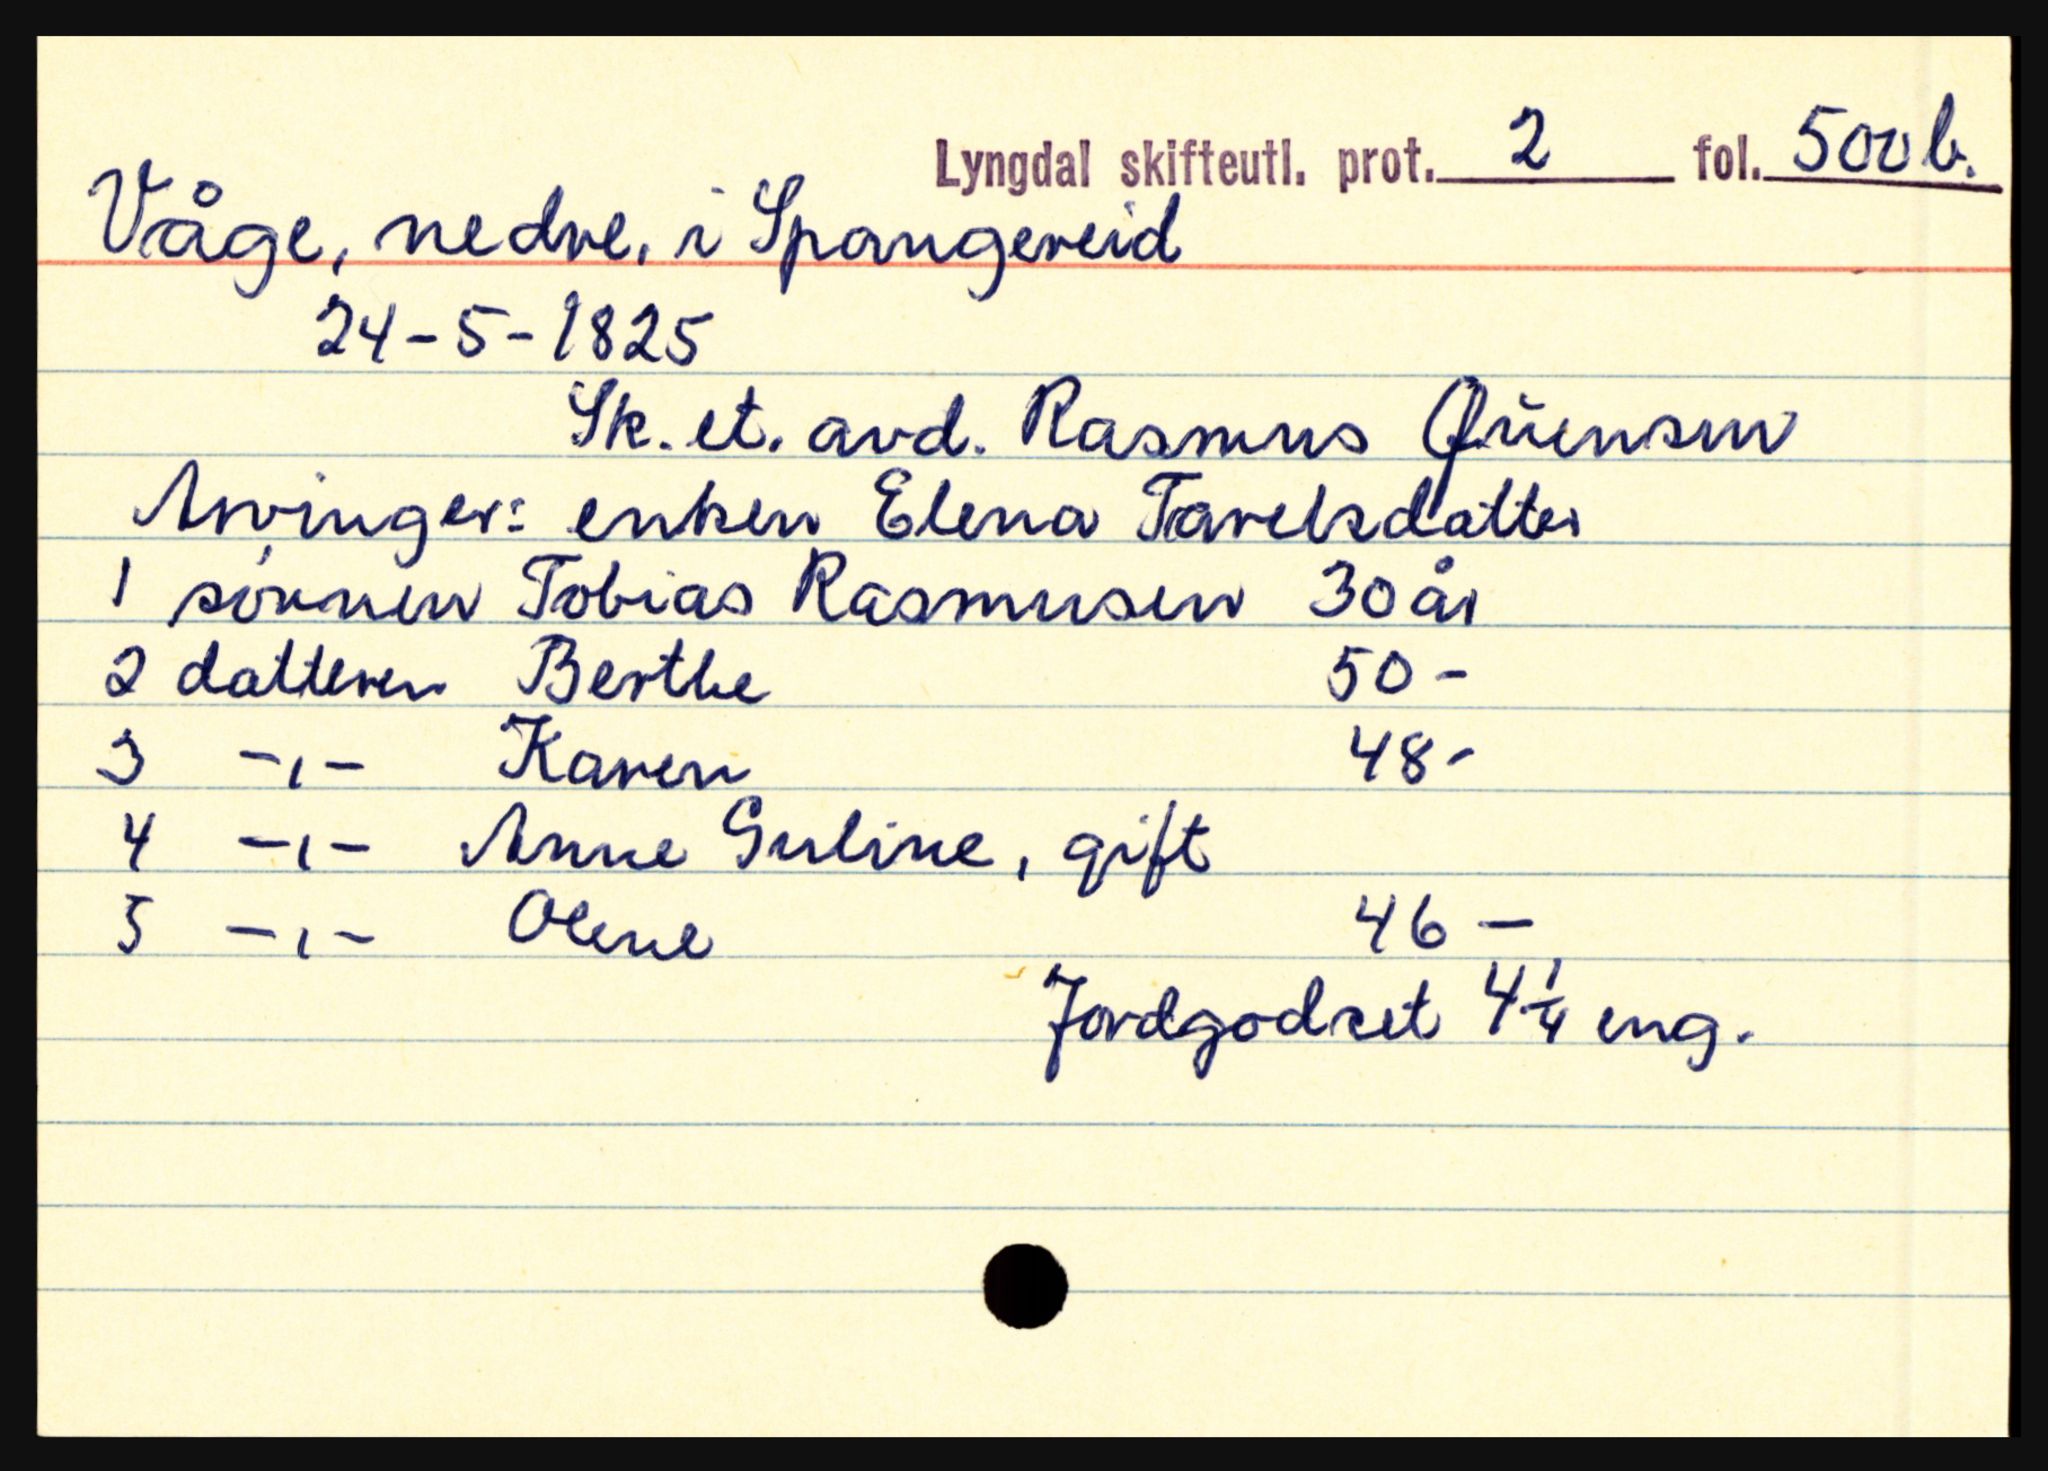 Lyngdal skifteutl. prot. 2 fol. 500 b.
Våge, nedre, i Spangereid
24-5-1825
Sk. et. avd. Rasmus
Arvinger: enken Elena Tarelsdatter
1 sønnen Tobias Rasmusen 30 år
2 datteren Berthe 50 -
3 -ı- Karen 48 -
4 -ı- Anne Guline, gift
5 -ı- Olene 46 -
Jordgodset 4 1/4 eng.